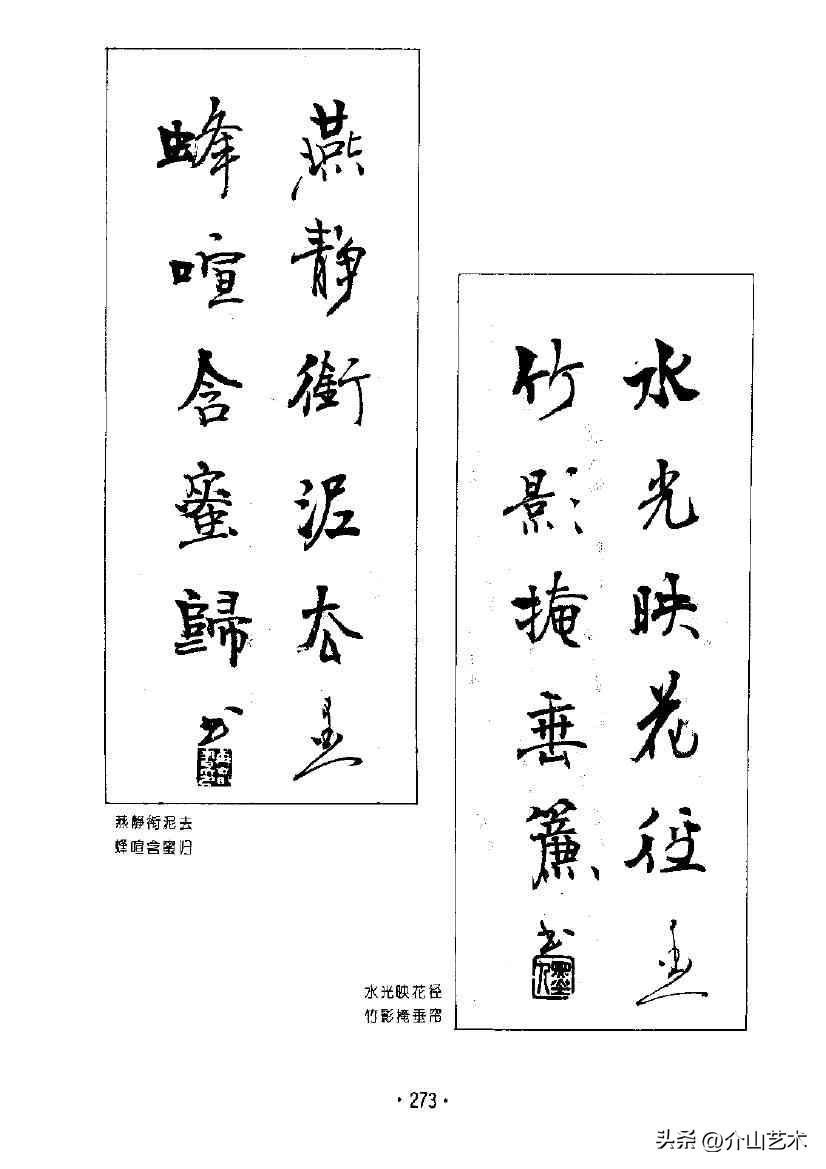 燕靜銜泥去
蜂喧含蜜歸
书
燕静衔泥去
蜂喧含蜜归
水光映花徑
竹影掩垂簾
书
水光映花径
竹影掩垂帘
·273·
头条 @介山艺术